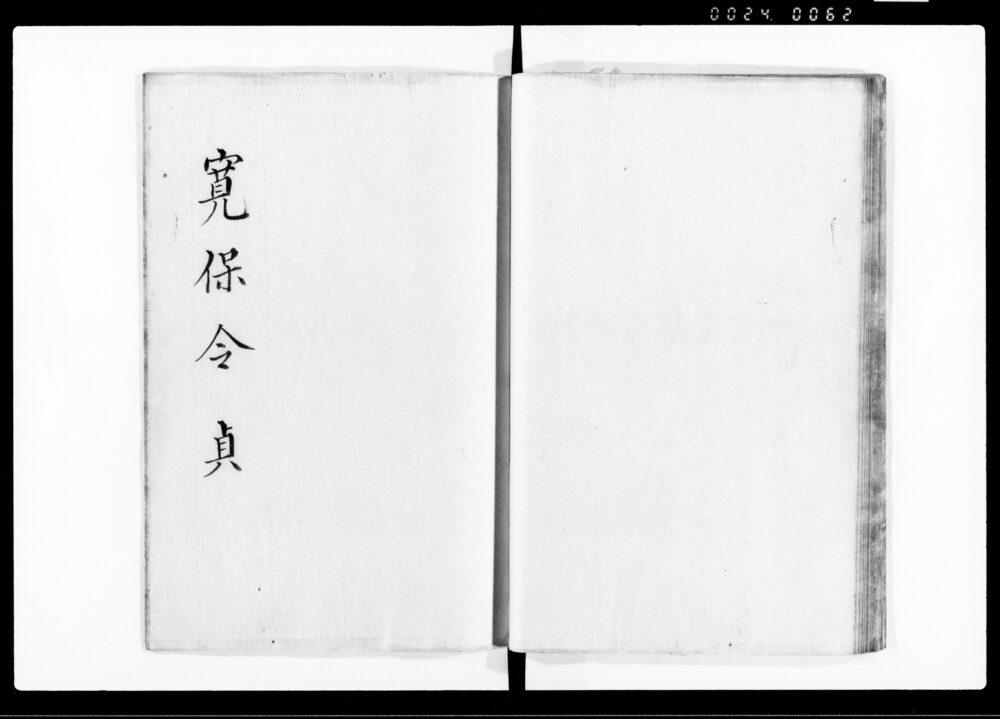 0024. 0062
寛保令 貞